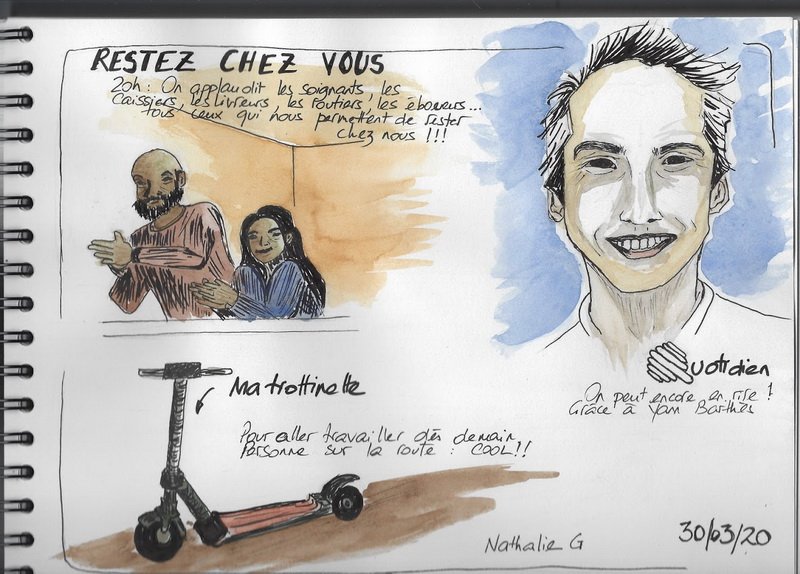 RESTEZ CHEZ VOUS
20h : On applaudit les soignants, les
caissiers, les livreurs, les routiers, les éboueurs...
tous ceux qui nous permettent de rester
chez nous !!!
Quotidien
On peut encore en rire !
Grâce à Yann Barthès
Ma trottinette
Pour aller travailler dès demain
Personne sur la route : COOL !!
Nathalie G
30/03/20